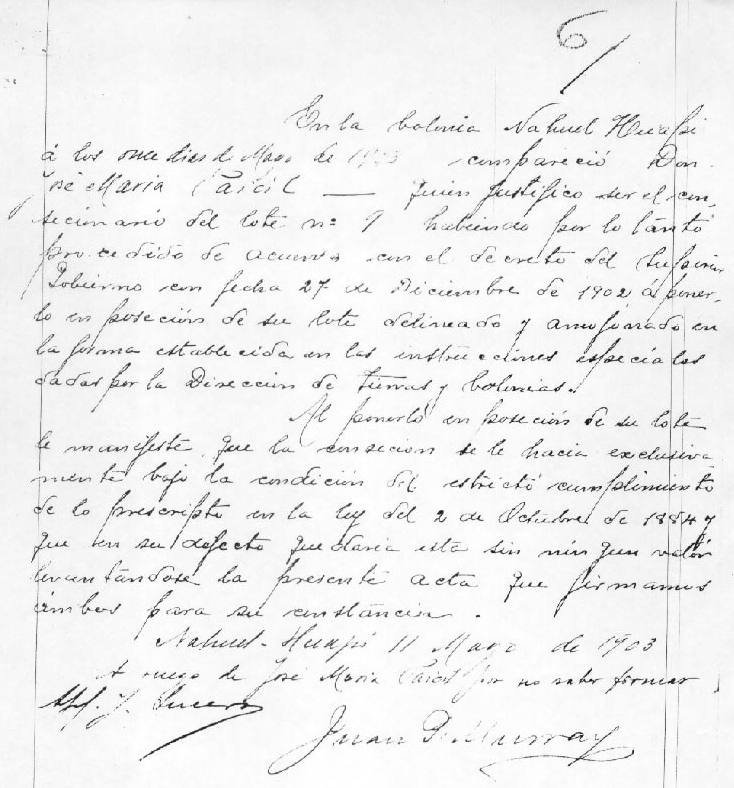 6/
En la Colonia Nahuel Huapi
á los once dias de Mayo de 1903 compareció Don
José Maria Paicil — quien justifico ser el con-
secionario del lote nº 9 habiendo por lo tanto
procedido de acuerdo con el decreto del Superior
Gobierno con fecha 27 de Diciembre de 1902 á poner-
lo en poseción de su lote delineado y amojonado en
la forma establecida en las instrucciones especiales
dadas por la Direccion de Tierras y Colonias.
Al ponerlo en poseción de su lote
le manifesté que la consecion se le hacia exclusiva
mente bajo la condición del estricto cumplimiento
de lo prescripto en la ley del 2 de Octubre de 1884 y
que en su defecto quedaria esta sin ningun valor
levantándose la presente acta que firmamos
ámbos para su constáncia.
Nahuel-Huapi 11 Mayo de 1903
A ruego de José Maria Paicil por no saber firmar
Lucero
Juan Murray